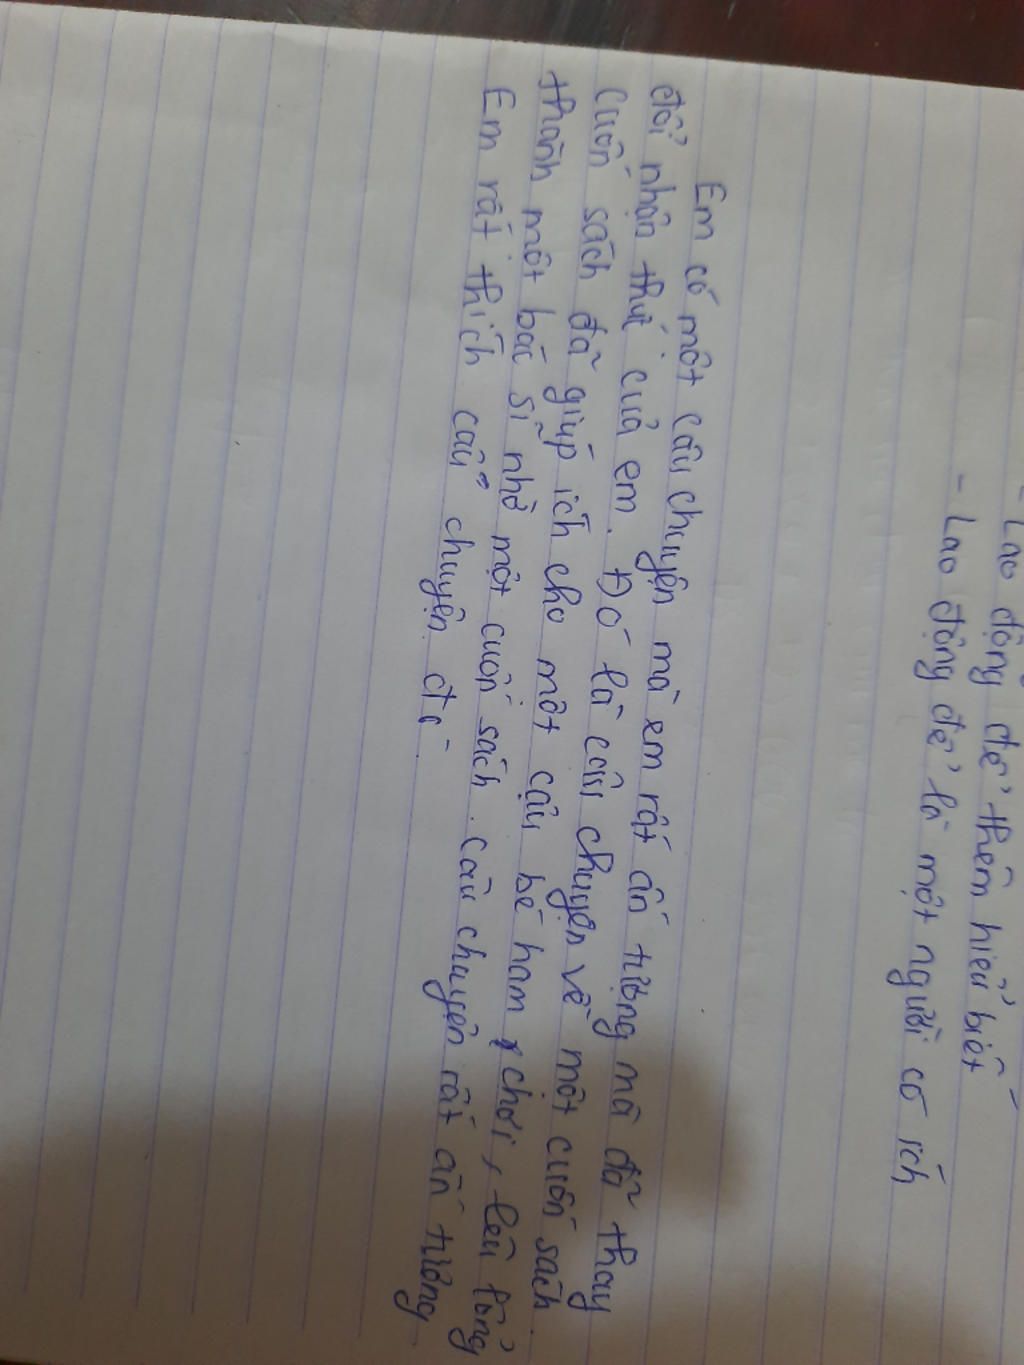 - Lao động để thêm hiểu biết
- Lao động để là một người có ích
Em có một câu chuyện mà em rất ấn tượng mà đã thay
đổi nhận thức của em. Đó là câu chuyện về một cuốn sách.
Cuốn sách đã giúp ích cho một cậu bé ham chơi, lêu lổng
thành một bác sĩ nhờ một cuốn sách. Câu chuyện rất ấn tượng
Em rất thích câu chuyện đó.